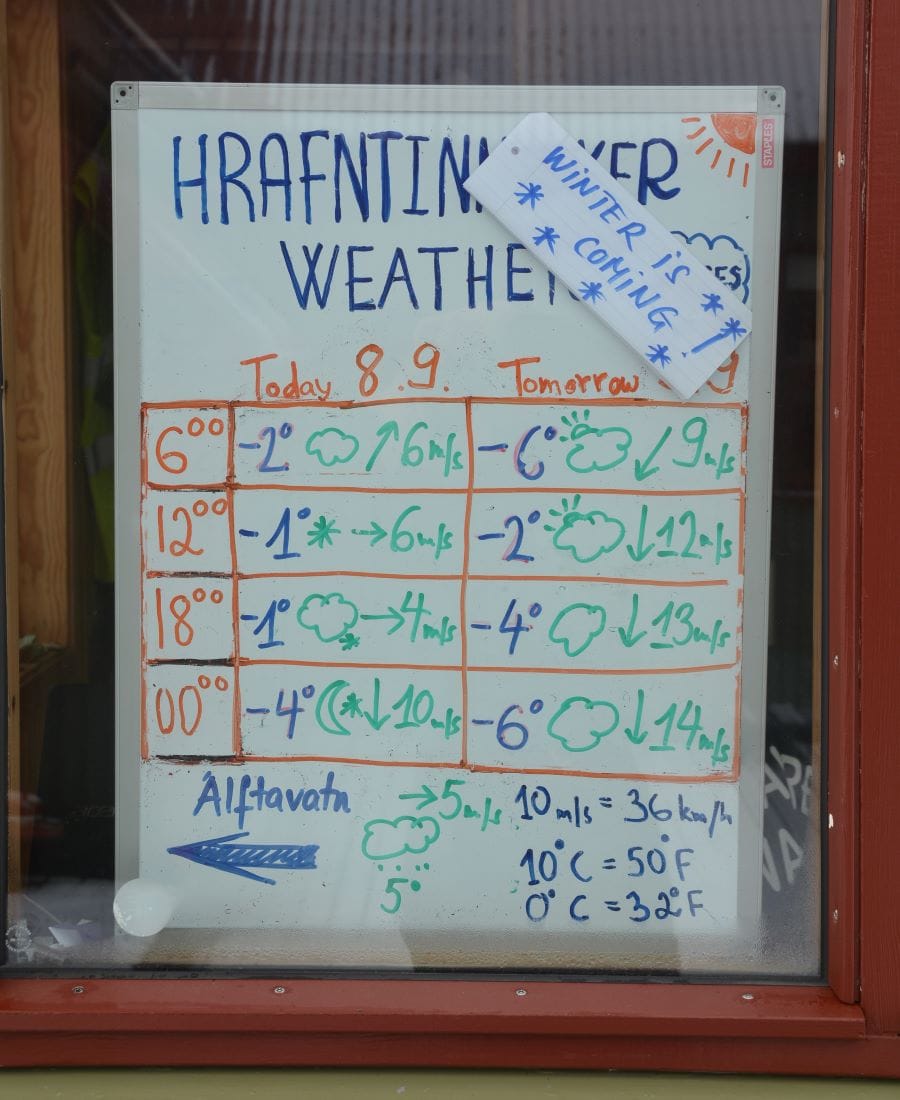 HRAFNTIN KER
WEATHE
WINTER IS
COMING !
STAPLES
Today 8.9. Tomorrow 9
6⁰⁰ -2° ↑ 6m/s -6° ↙ 9m/s
12⁰⁰ -1° * → 6m/s -2° ↓ 12m/s
18⁰⁰ -1° * → 4m/s -4° ↓ 13m/s
00⁰⁰ -4° * ↓ 10m/s -6° ↓ 14m/s
Álftavatn
→ 5m/s
5°
10 m/s = 36 km/h
10°C = 50°F
0°C = 32°F